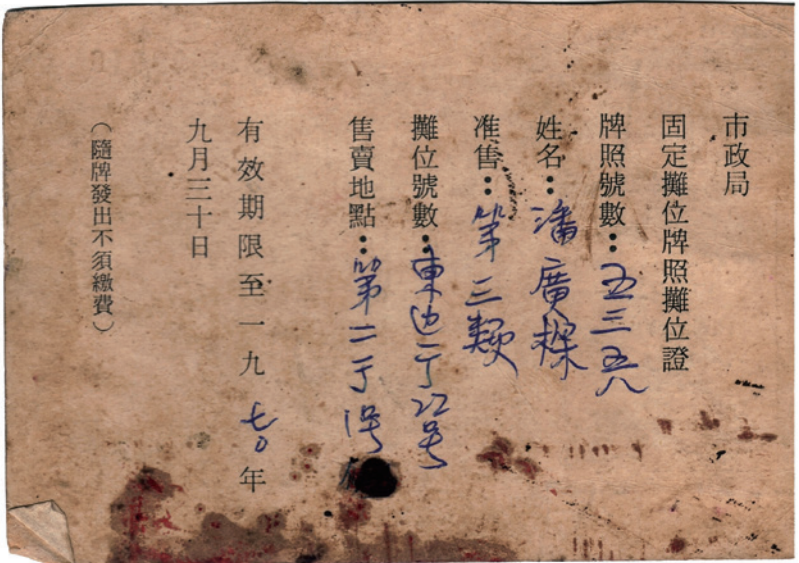 市政局
固定攤位牌照攤位證
牌照號數：五三五八
姓名：潘廣
准售：第三類
攤位號數：東边丁22号
售賣地點：第二丁
有效期限至一九七〇年
九月三十日
（隨牌發出不須繳費）